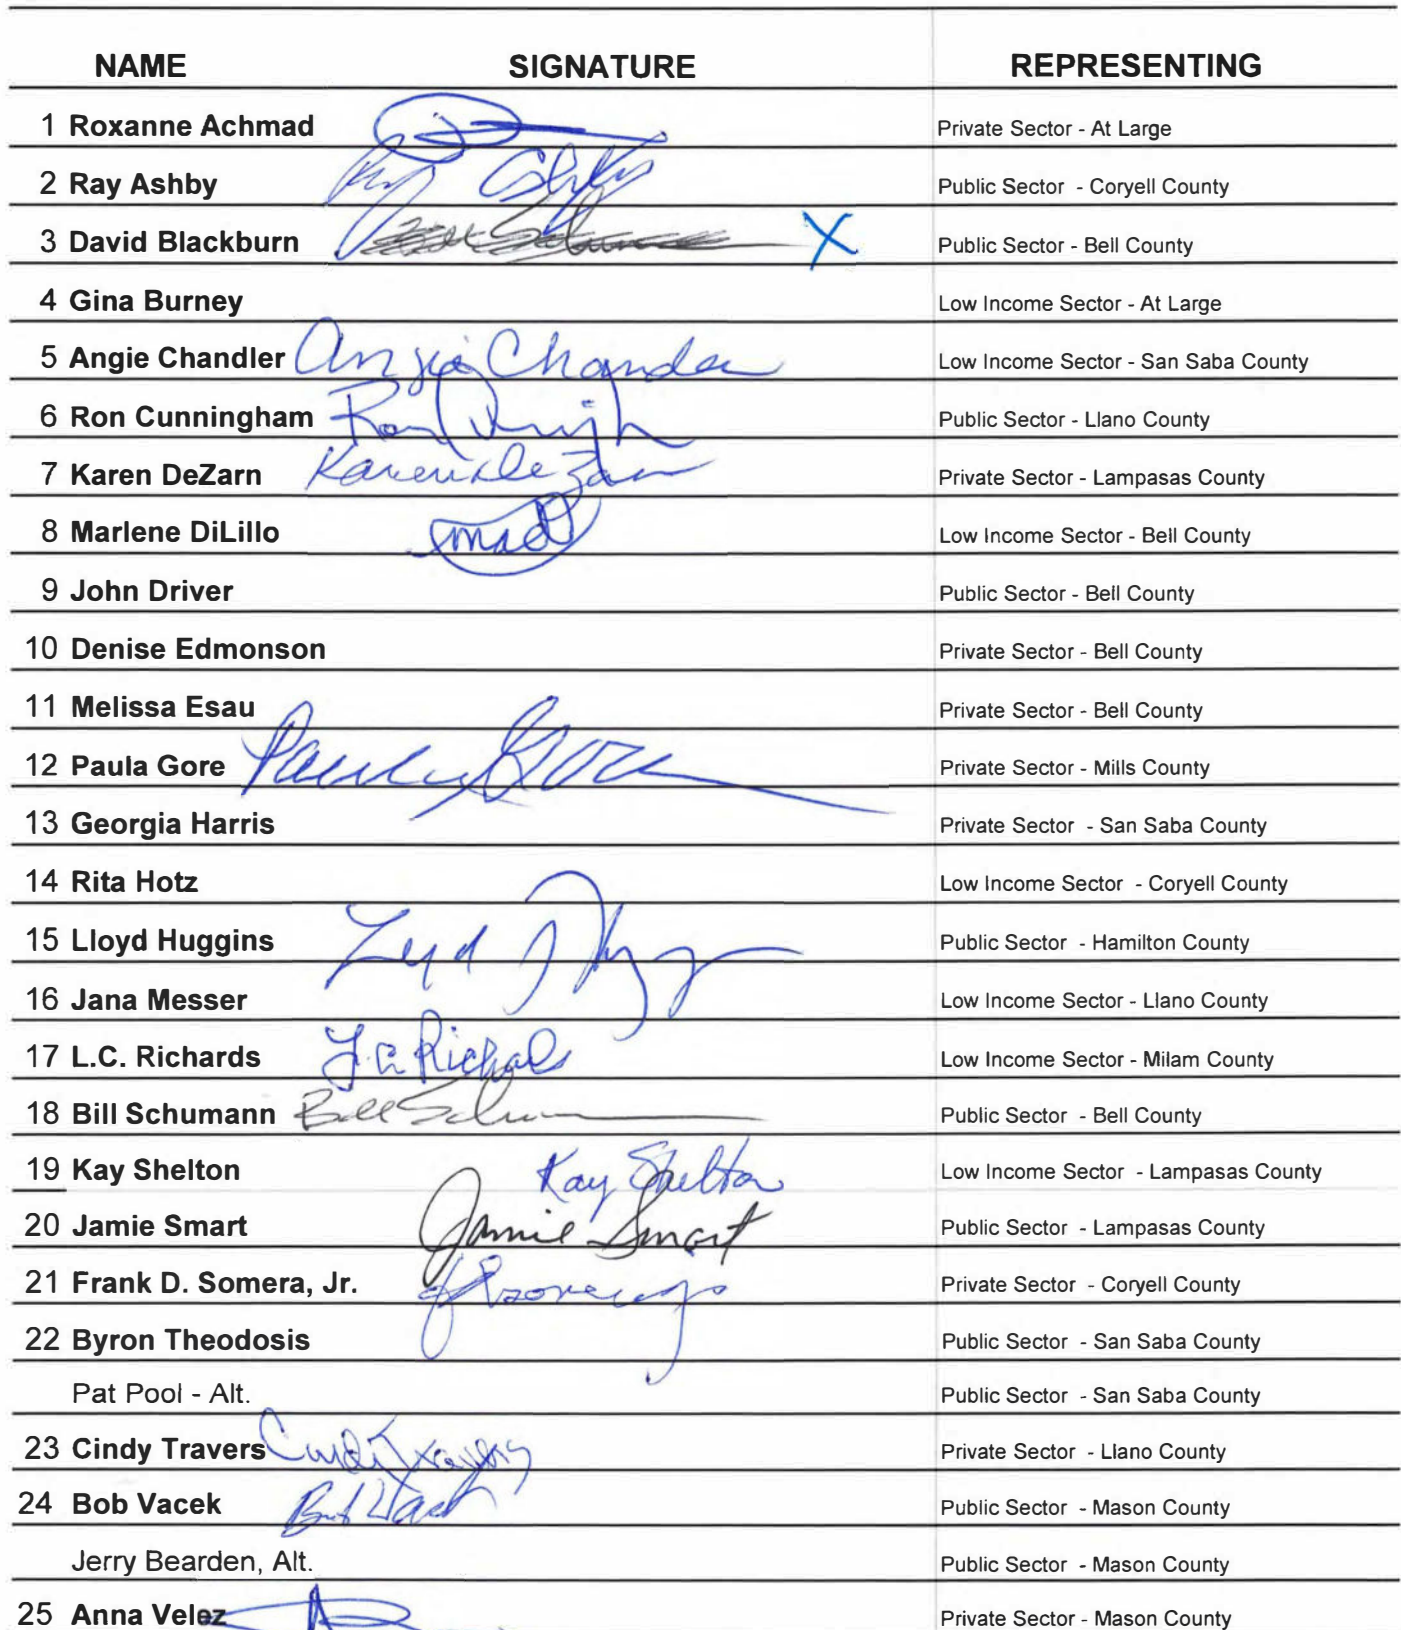 NAME SIGNATURE REPRESENTING
1 Roxanne Achmad Private Sector - At Large
2 Ray Ashby Ray Ashby Public Sector - Coryell County
3 David Blackburn Bill Schumann X Public Sector - Bell County
4 Gina Burney Low Income Sector - At Large
5 Angie Chandler Angie Chandler Low Income Sector - San Saba County
6 Ron Cunningham Ron Public Sector - Llano County
7 Karen DeZarn Karen DeZarn Private Sector - Lampasas County
8 Marlene DiLillo mad Low Income Sector - Bell County
9 John Driver Public Sector - Bell County
10 Denise Edmonson Private Sector - Bell County
11 Melissa Esau Private Sector - Bell County
12 Paula Gore Paula Gore Private Sector - Mills County
13 Georgia Harris Private Sector - San Saba County
14 Rita Hotz Low Income Sector - Coryell County
15 Lloyd Huggins Lloyd Public Sector - Hamilton County
16 Jana Messer Low Income Sector - Llano County
17 L.C. Richards L.C. Richards Low Income Sector - Milam County
18 Bill Schumann Bill Schumann Public Sector - Bell County
19 Kay Shelton Kay Shelton Low Income Sector - Lampasas County
20 Jamie Smart Jamie Smart Public Sector - Lampasas County
21 Frank D. Somera, Jr. Private Sector - Coryell County
22 Byron Theodosis Public Sector - San Saba County
Pat Pool - Alt. Public Sector - San Saba County
23 Cindy Travers Cindy Travers Private Sector - Llano County
24 Bob Vacek Bob Vacek Public Sector - Mason County
Jerry Bearden, Alt. Public Sector - Mason County
25 Anna Velez Private Sector - Mason County